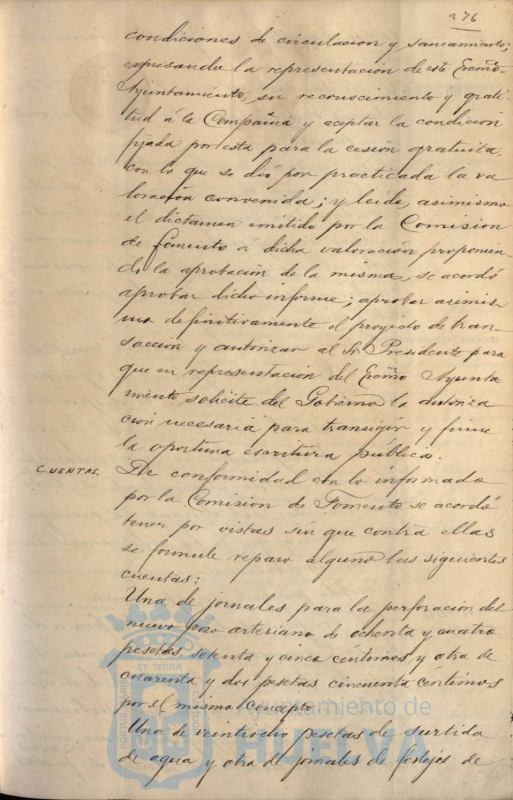 276
condiciones de circulacion y saneamiento;
expresando la representacion de este Excmo.
Ayuntamiento, su reconocimiento y grati-
tud á la Compañia y aceptar la condicion
fijada por esta para la cesión gratuita,
con lo que se dió por practicada la va-
loración convenida; y leido, asimismo
el dictamen emitido por la Comision
de fomento á dicha valoración proponien-
do la aprobación de la misma, se acordó
aprobar dicho informe; aprobar asimis-
mo definitivamente el proyecto de tran-
sacción y autorizar al Sr. Presidente para
que en representacion del Excmo Ayunta
miento solicite del Gobierno la autoriza
ción necesaria para transigir y firme
la oportuna escritura pública.
CUENTAS. De conformidad con lo informado
por la Comision de Fomento se acordó
tener por vistas sin que contra ellas
se formule reparo alguno las siguientes
cuentas:
Una de jornales para la perforación del
nuevo pozo artesiano de ochenta y cuatro
pesetas setenta y cinco centimos y otra de
cuarenta y dos pesetas cincuenta centimos
por el mismo concepto.
Una de veintiocho pesetas de surtida
de agua y otra de jornales de festejos de
PORTUS MARIS ET TERRAE
Ayuntamiento de
HUELVA